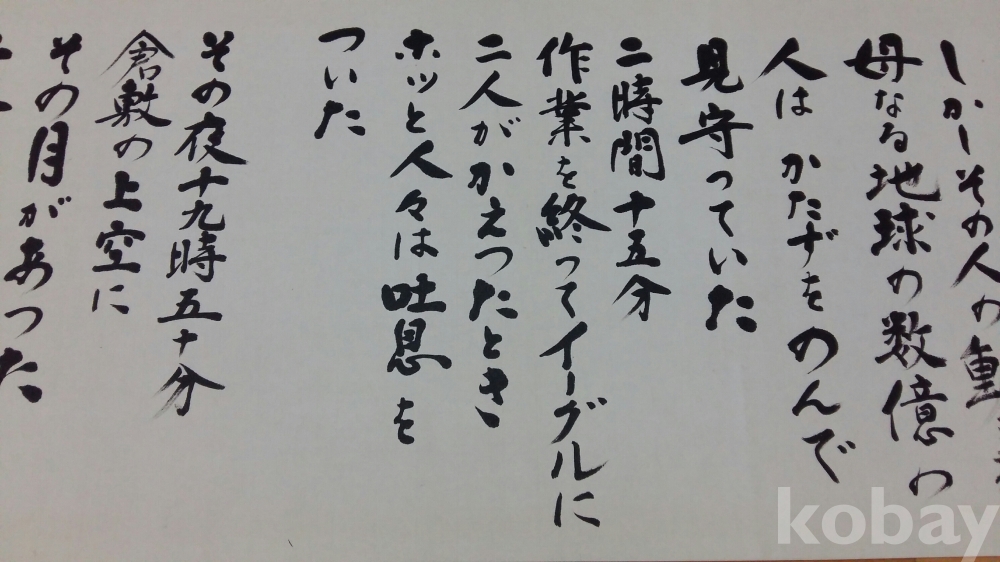 しかしその人の重
母なる地球の数億の
人は かたずをのんで
見守っていた
二時間十五分
作業を終ってイーグルに
二人がかえつたとき
ホッと人々は吐息を
ついた
その夜十九時五十分
倉敷の上空に
その月があつた
kobay